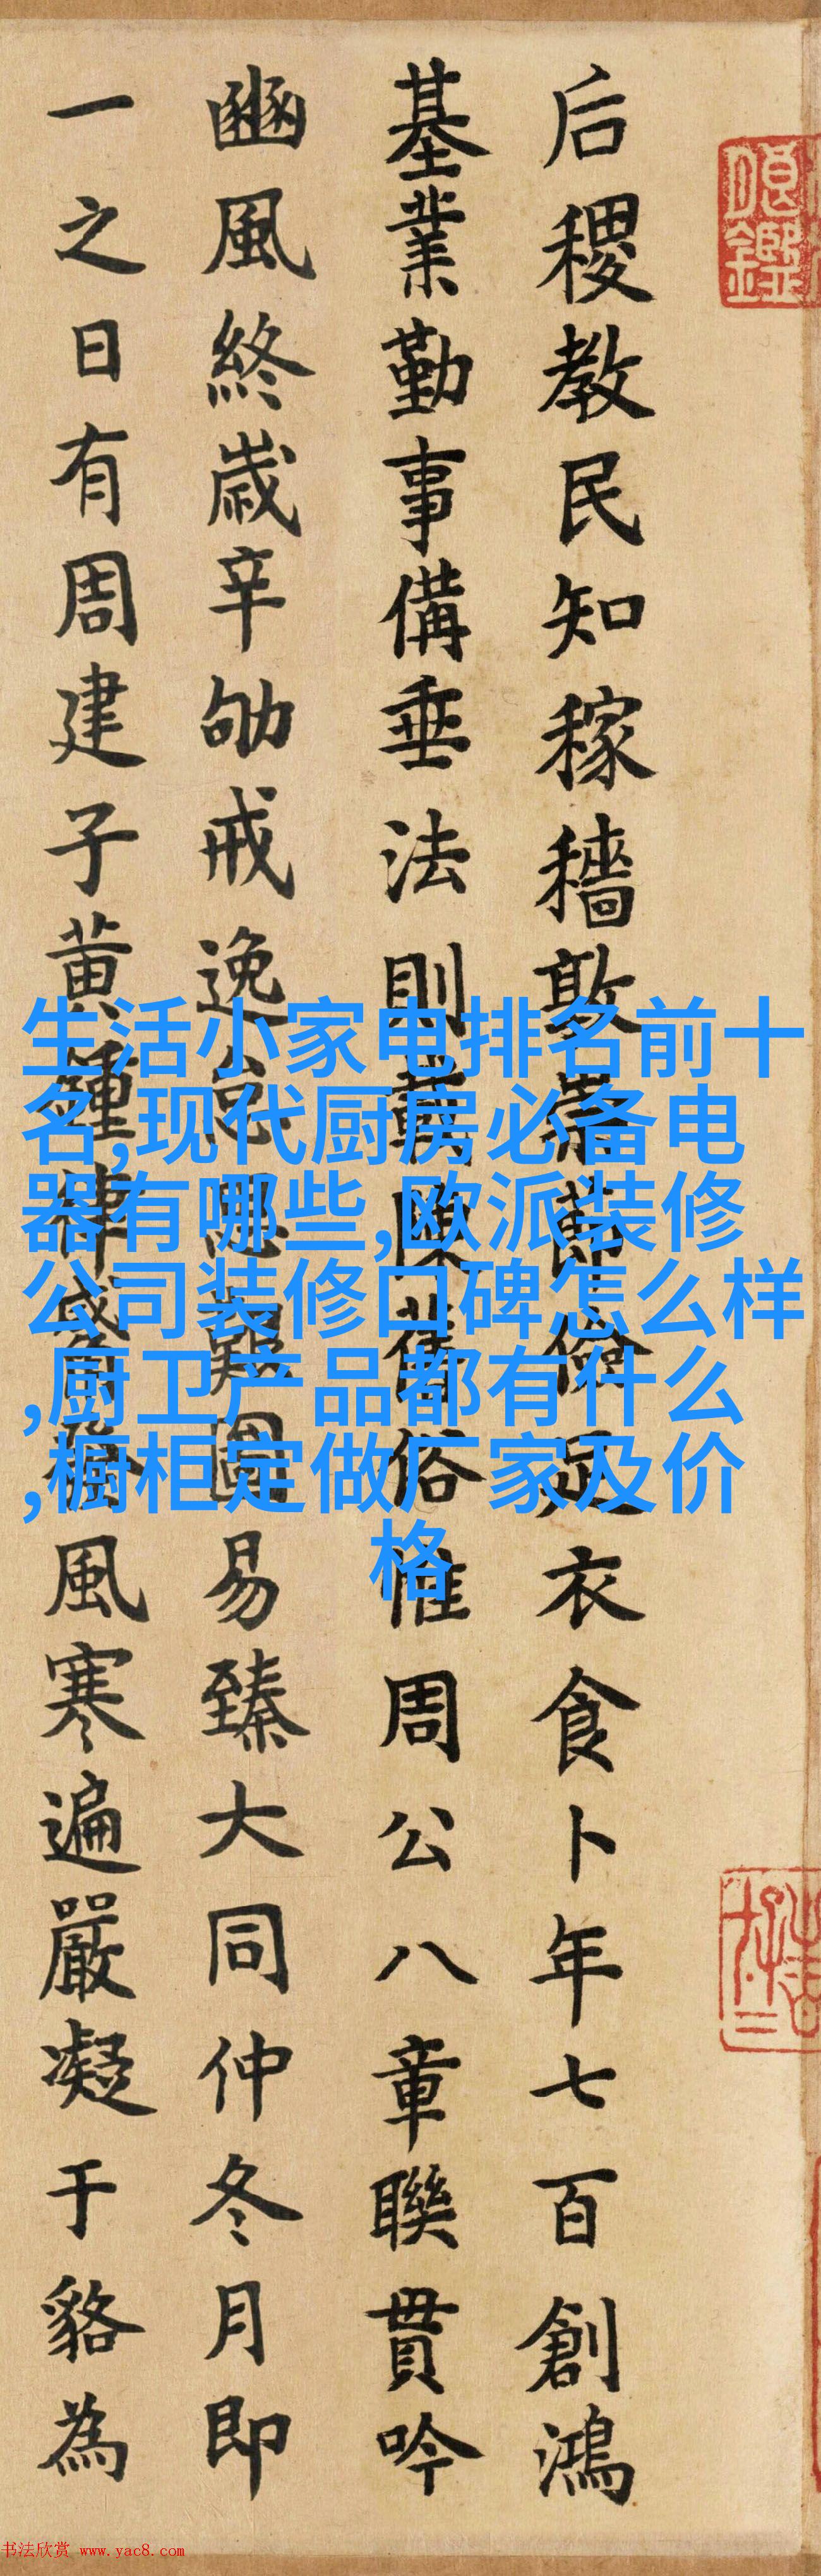 后稷教民知稼穡敦崇節儉足衣食卜年七百創鴻
基業勤事備垂法則載陳舊俗惟周公八章聯貫吟
豳風終歲辛劬戒逸怠思艱圖易臻大同仲冬月即
一之日有周建子黃鍾律觱發風寒遍嚴凝于貉為
生活小家电排名前十
名,现代厨房必备电
器有哪些,欧派装修
公司装修口碑怎么样
,厨卫产品都有什么
,橱柜定做厂家及价
格
书法欣赏 www.yac8.com